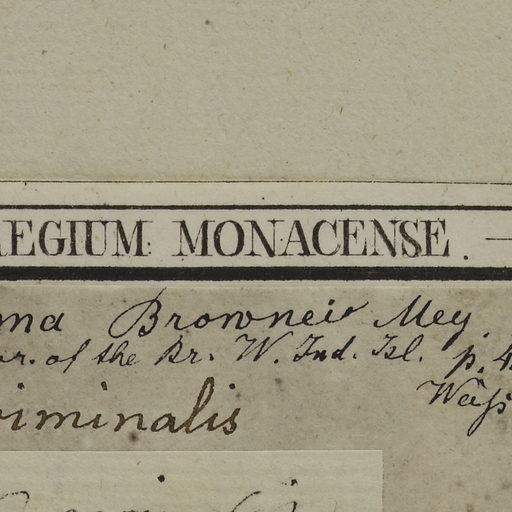 AEGIUM MONACENSE. —
ma Browneis Mey.
r. of the Br. W. Ind. Isl. p. 4
Wāß
iminalis